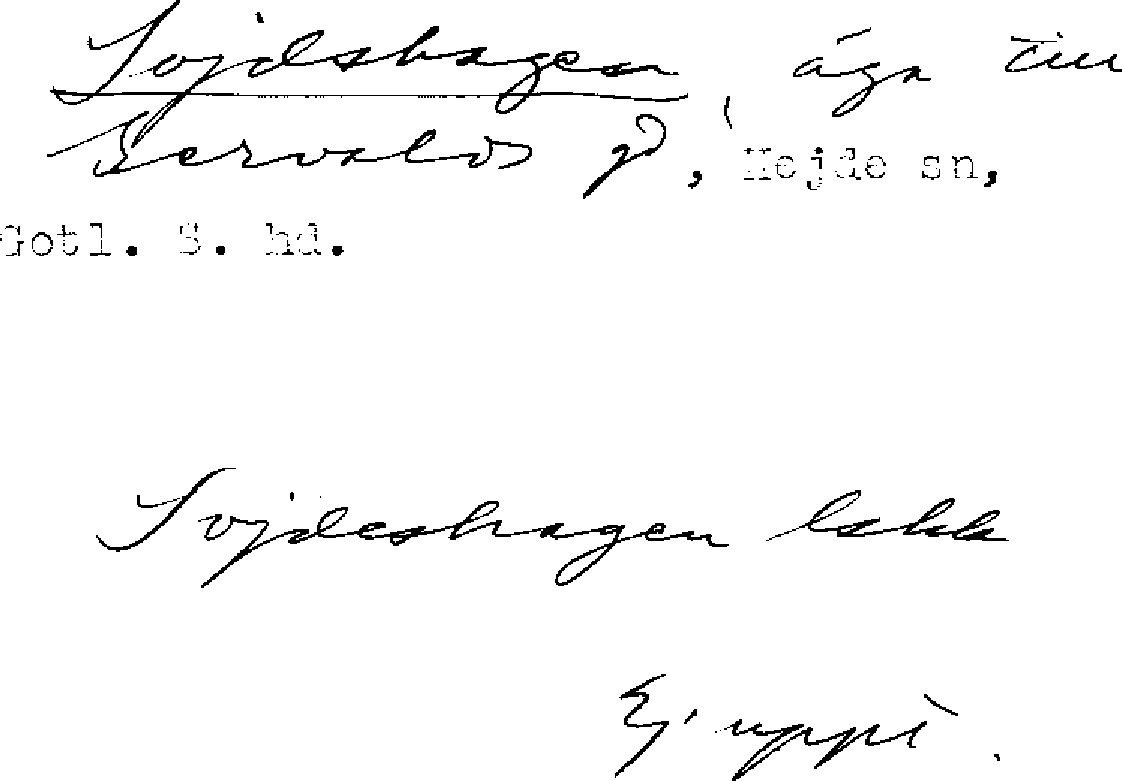 Sojdshagen, äga till
Gervalds gd, Hejde sn,
Gotl. S. hd.
Sojdeshagen Lakk
Ej uppt.